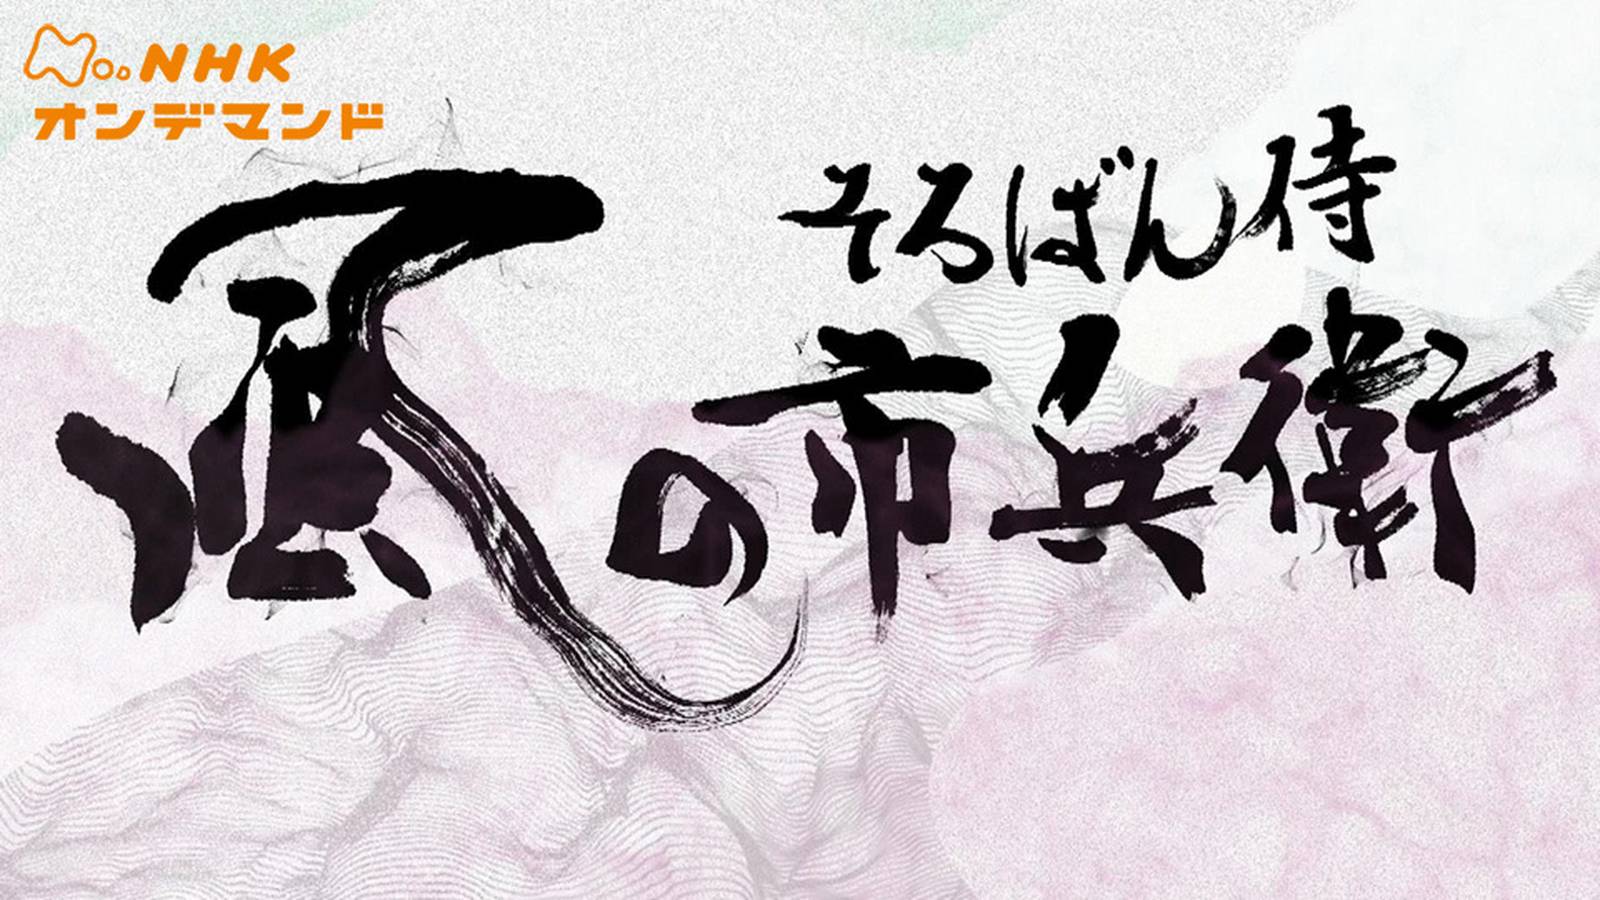 NHK
オンデマンド
そろばん侍
風の市兵衛